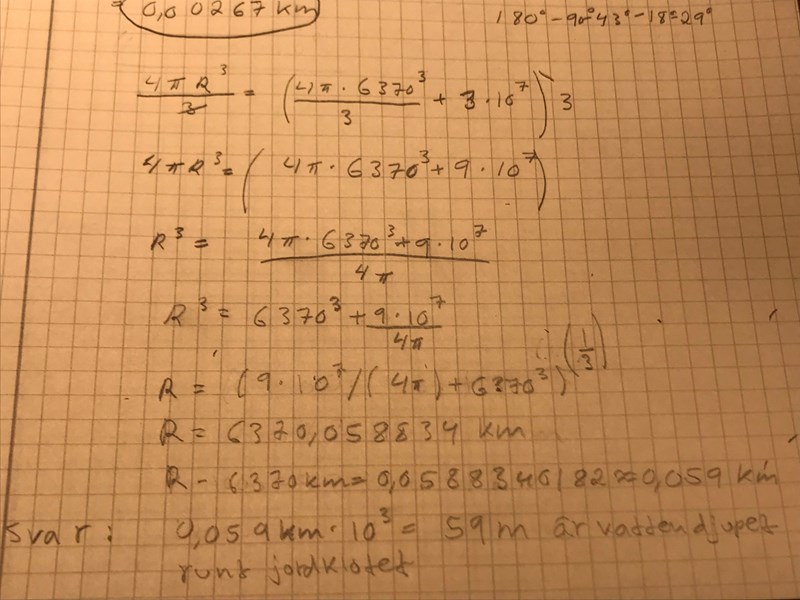 = 0,00267 km
180° - 90° - 43° - 18° = 29°
4πR³/3 = (4π · 6370³/3 + 3 · 10⁷) 3
4πR³ = (4π · 6370³ + 9 · 10⁷)
R³ = 4π · 6370³ + 9 · 10⁷/4π
R³ = 6370³ + 9 · 10⁷/4π
R = (9 · 10⁷/(4π) + 6370³)^(1/3)
R = 6370,058834 km
R - 6370 km = 0,0588340182 ≈ 0,059 km
Svar: 0,059 km · 10³ = 59 m är vattendjupet
runt jordklotet